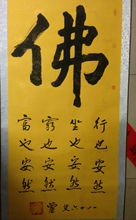 佛
行也安然
坐也安然
窮也安然
富也安然